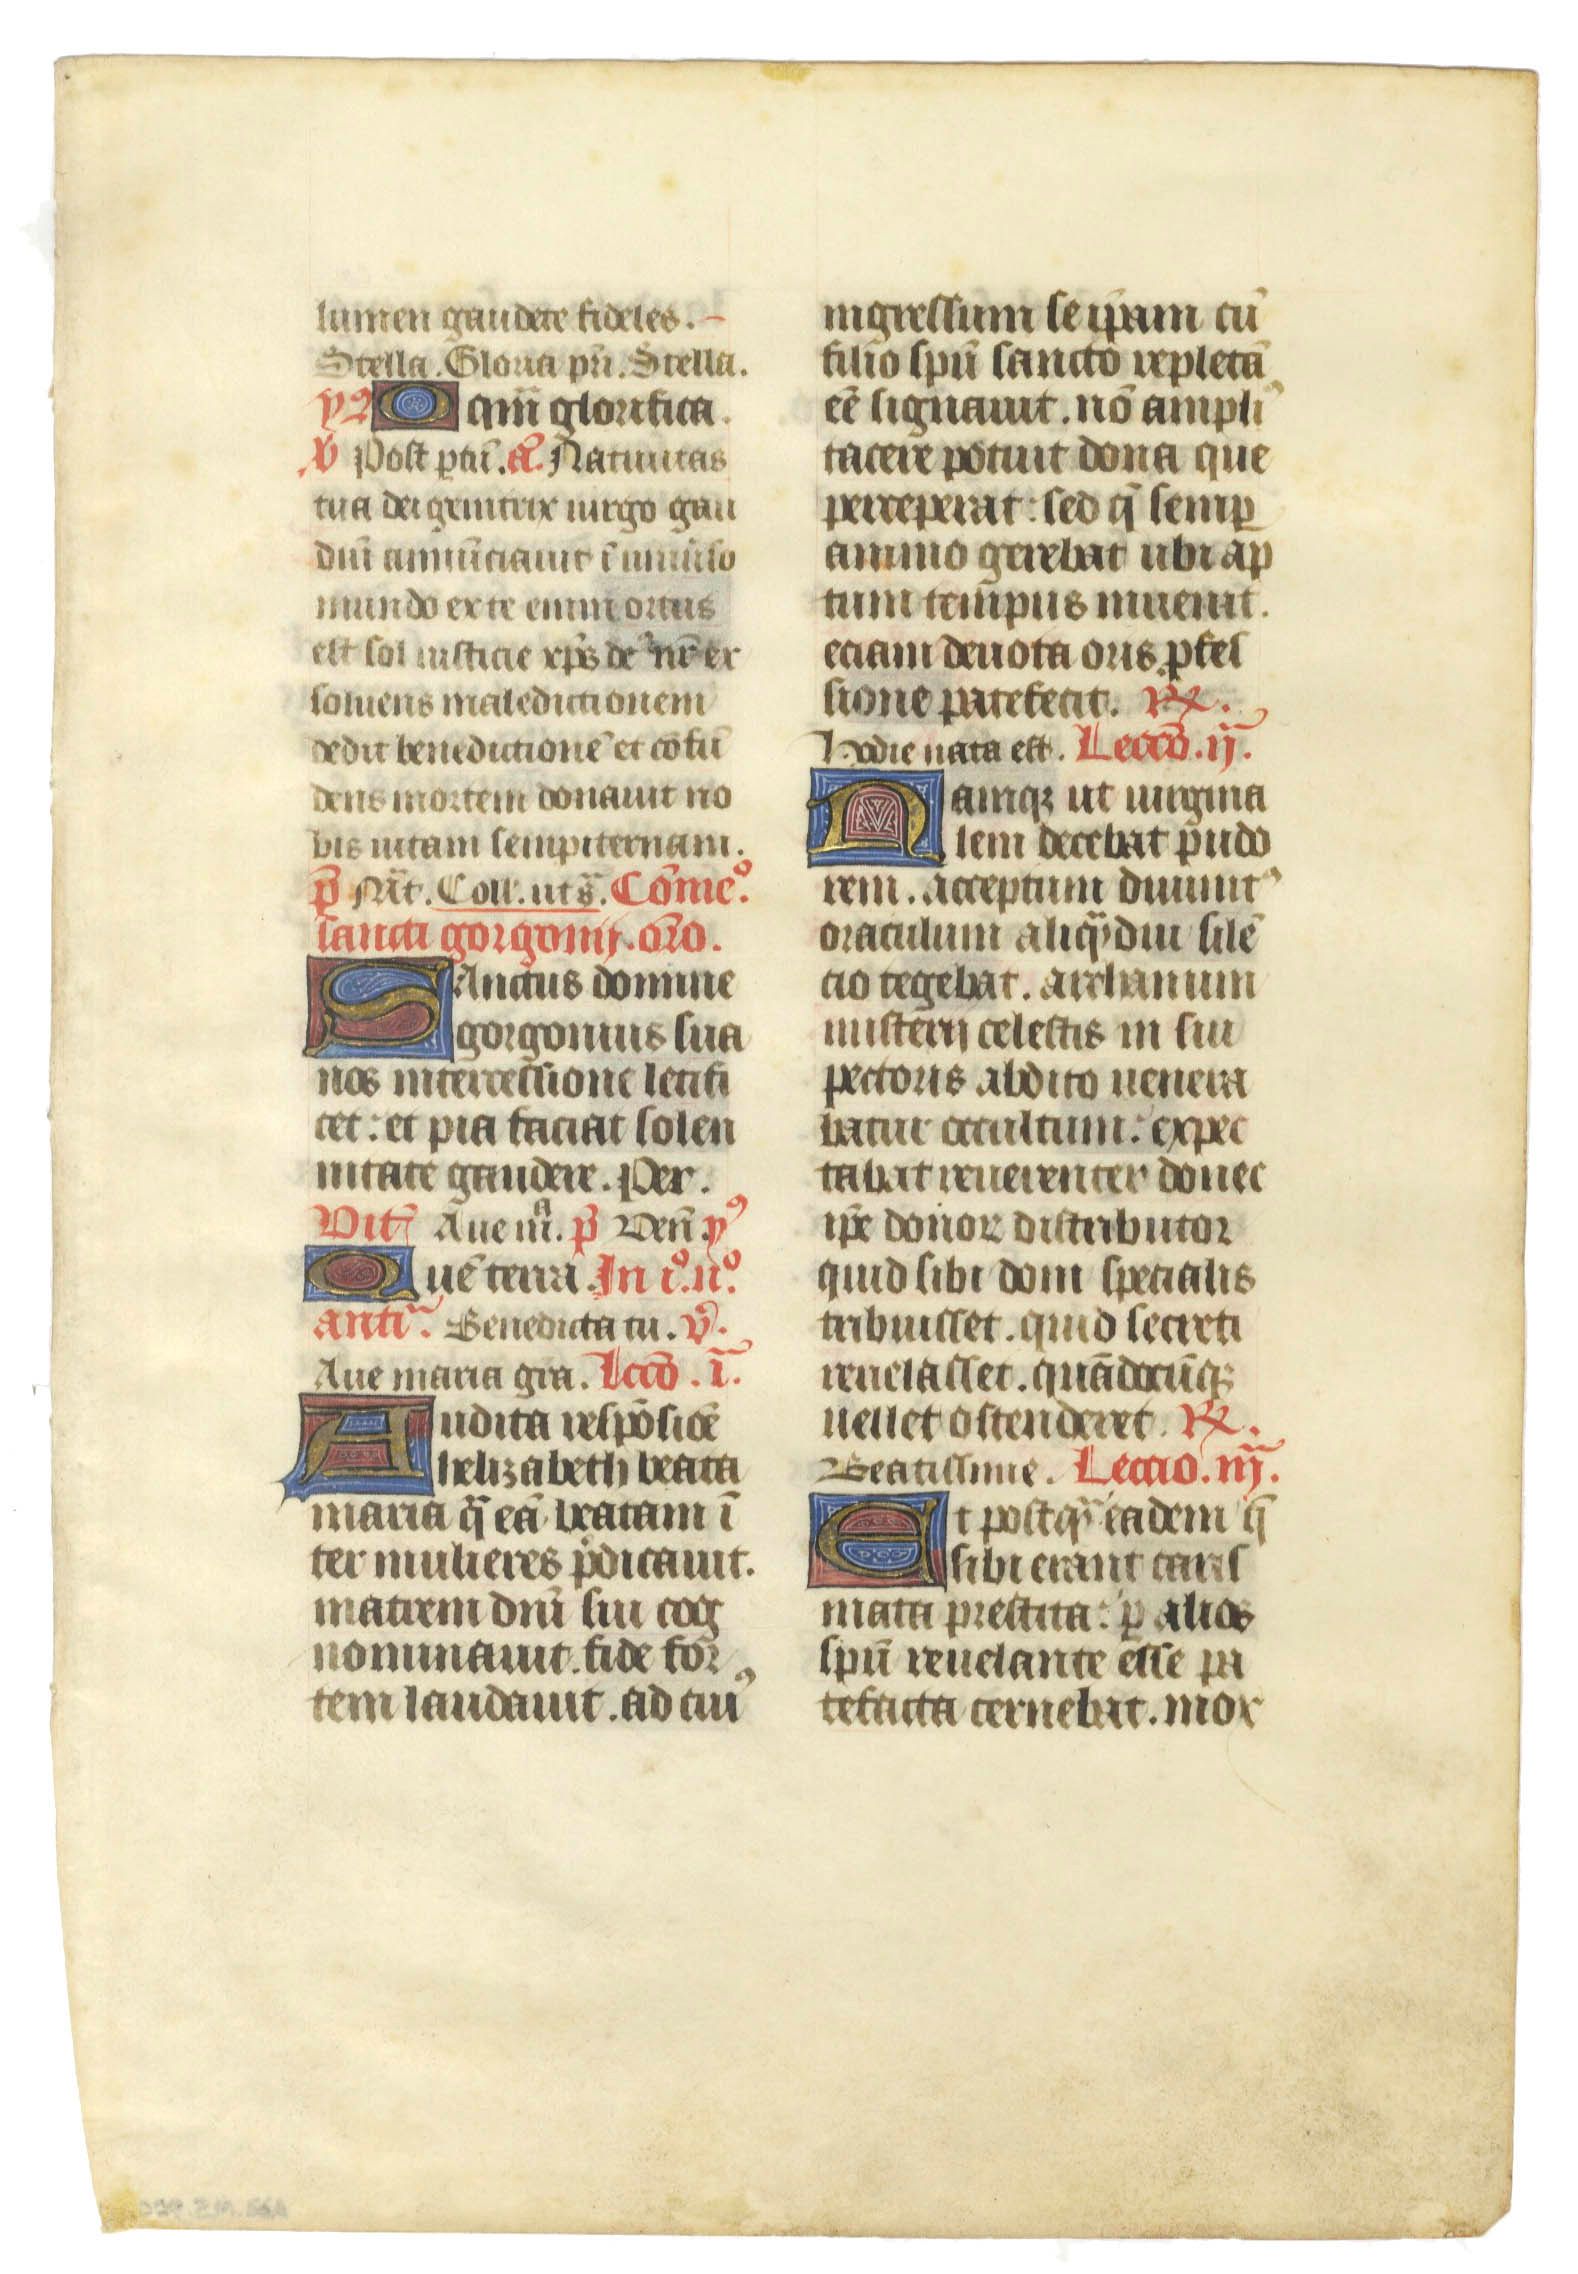 lumen gaudete fideles.
Stella. Gloria pr̄i. Stella.
yꝰ O quā glorifica.
v̓ Post ptū. a᷒. Natiuitas
tua dei genitrix uirgo gau
diū annūciauit ī uniūso
mundo ex te enim ortus
est sol iusticie xp̄s deꝰ nr̄ ex
soluens maledictionem
dedit benedictionē et cōfū
dens mortem donauit no
bis uitam sempiternam.
p̄ Nāt. Coll. ut sͣ. Cōmeͦ.
sancti gorgonij. oro.
SAnctus domine
gorgonius sua
nos intercessione letifi
cet: et pia faciat solen
nitate gaudere. Per.
Vit̄ Aue mͣ. p̄ Ven̄. yꝰ
Quē terra. In iͦ. nͦ.
antiᷓ. Benedicta tu. v̓.
Aue maria gra. Lccō. ī.
Audita respōsiōe
helizabeth beata
maria q̄ eā beatam ī
ter mulieres p̄dicauit.
matrem dn̄i sui cog
nominauit. fide for
tem laudauit. ad cuiꝰ
ingressum se ip̄am cū
filio sp̄u sancto repletā
eē signauit. nō ampliꝰ
tacere potuit dona que
perceperat: sed q̄ semꝑ
animo gerebat ubi ap
tum tempus inuenit.
eciam deuota oris ꝓfes
sione patefecit. R̷.
Hodie nata est. Leccō. ij.
Namqꝫ ut uirgina
lem decebat pudo
rem. acceptum diuinitꝰ
oraculum aliqͣdiu silē
cio tegebat. archanum
misterij celestis in sui
pectoris abdito uenera
batur occultum: expec
tabat reuerenter donec
ip̄e donor distributor
quid sibi doni specialis
tribuisset. quid secreti
reuelasset. quādocūqꝫ
uellet ostenderet. R̷.
Beatissime. Leccio. iij.
Et postqͣ eadem q̄
sibi erant caris
mata prestita: ꝑ alios
sp̄u reuelante esse pa
tefacta cernebat. mox